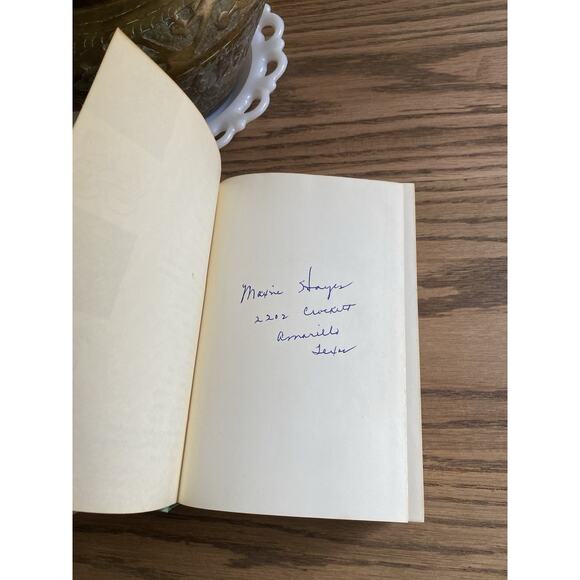 Maxine Hayes
2202 Crockett
Amarillo
Texas